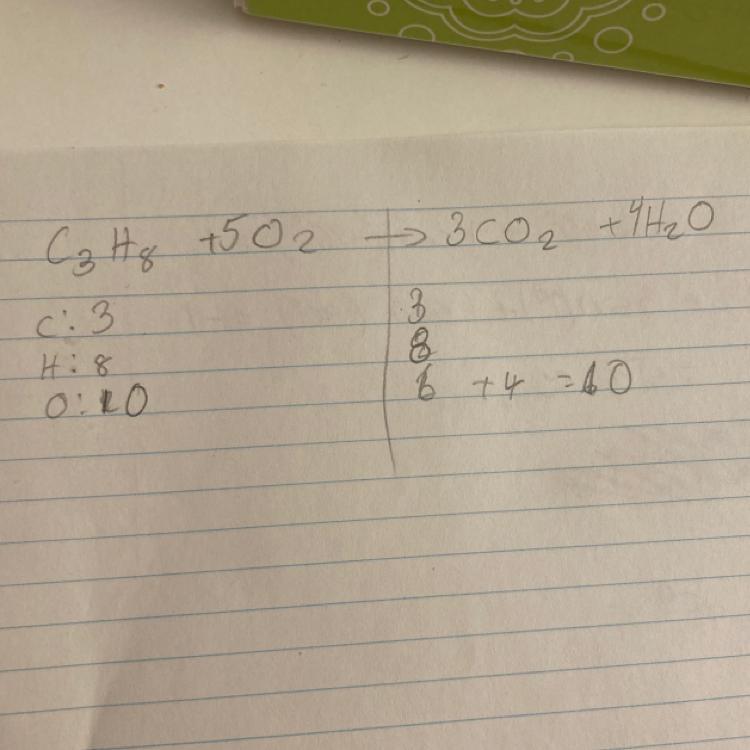 C₃H₈ +5O₂ → 3CO₂ +4H₂O
C: 3 3
H: 8 8
O: 10 6 +4 =10